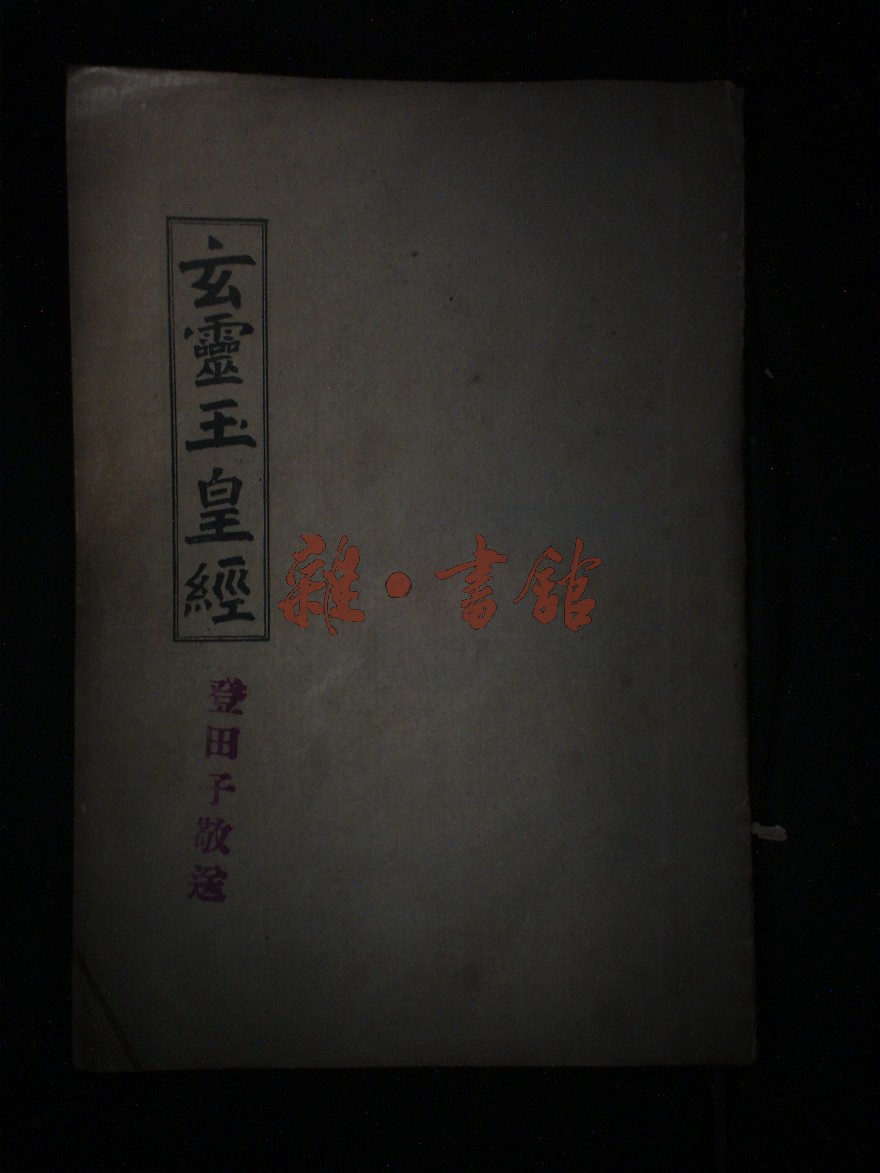 玄靈玉皇經
登田子敬送
雜·書館